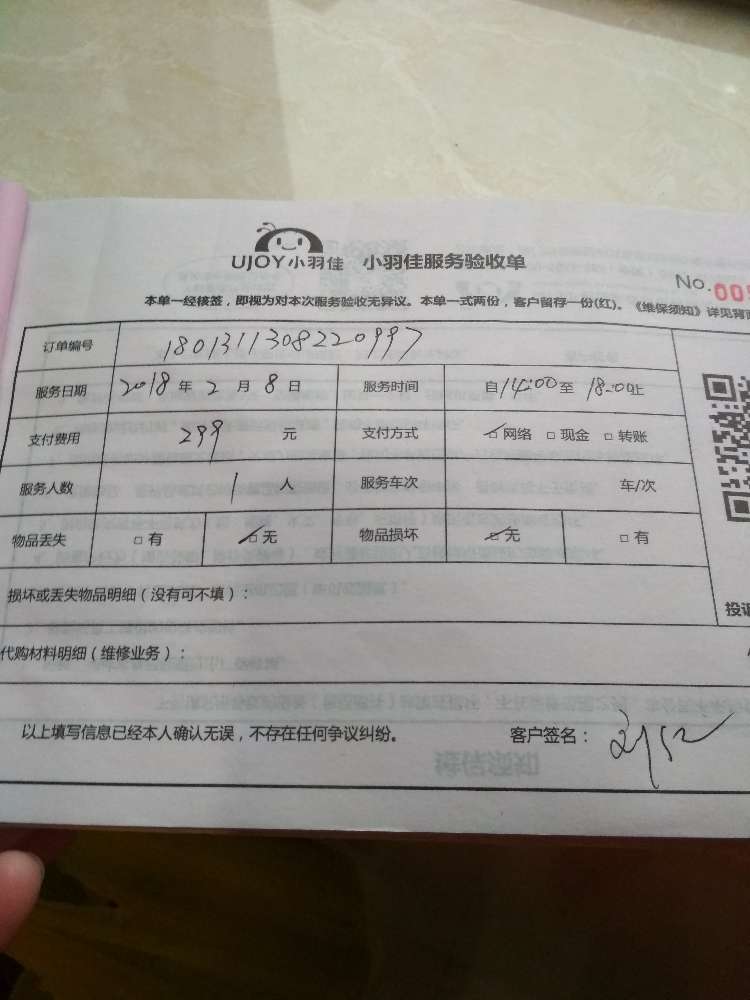 UJOY小羽佳 小羽佳服务验收单
No.00
本单一经核签，即视为对本次服务验收无异议。本单一式两份，客户留存一份(红)。《维保须知》详见背面
订单编号 1801311308220997
服务日期 2018 年 2 月 8 日 服务时间 自14:00至 18:00止
支付费用 299 元 支付方式 ☑网络 □现金 □转账
服务人数 1 人 服务车次 车/次
物品丢失 □有 ☑无 物品损坏 ☑无 □有
损坏或丢失物品明细（没有可不填）：
投诉
代购材料明细（维修业务）：
以上填写信息已经本人确认无误，不存在任何争议纠纷。 客户签名：